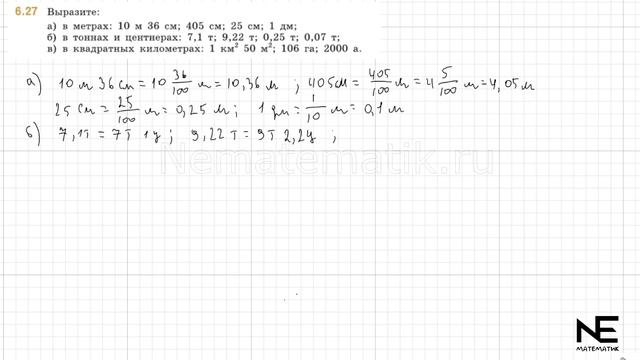 6.27 Выразите:
а) в метрах: 10 м 36 см; 405 см; 25 см; 1 дм;
б) в тоннах и центнерах: 7,1 т; 9,22 т; 0,25 т; 0,07 т;
в) в квадратных километрах: 1 км² 50 м²; 106 га; 2000 а.
а) 10 м 36 см = 10 36/100 м = 10,36 м ; 405 см = 405/100 м = 4 5/100 м = 4,05 м
25 см = 25/100 м = 0,25 м ; 1 дм = 1/10 м = 0,1 м
б) 7,1т = 7т 1ц ; 9,22 т = 9т 2,2ц ;
Nematematik.ru
NE
МАТЕМАТИК